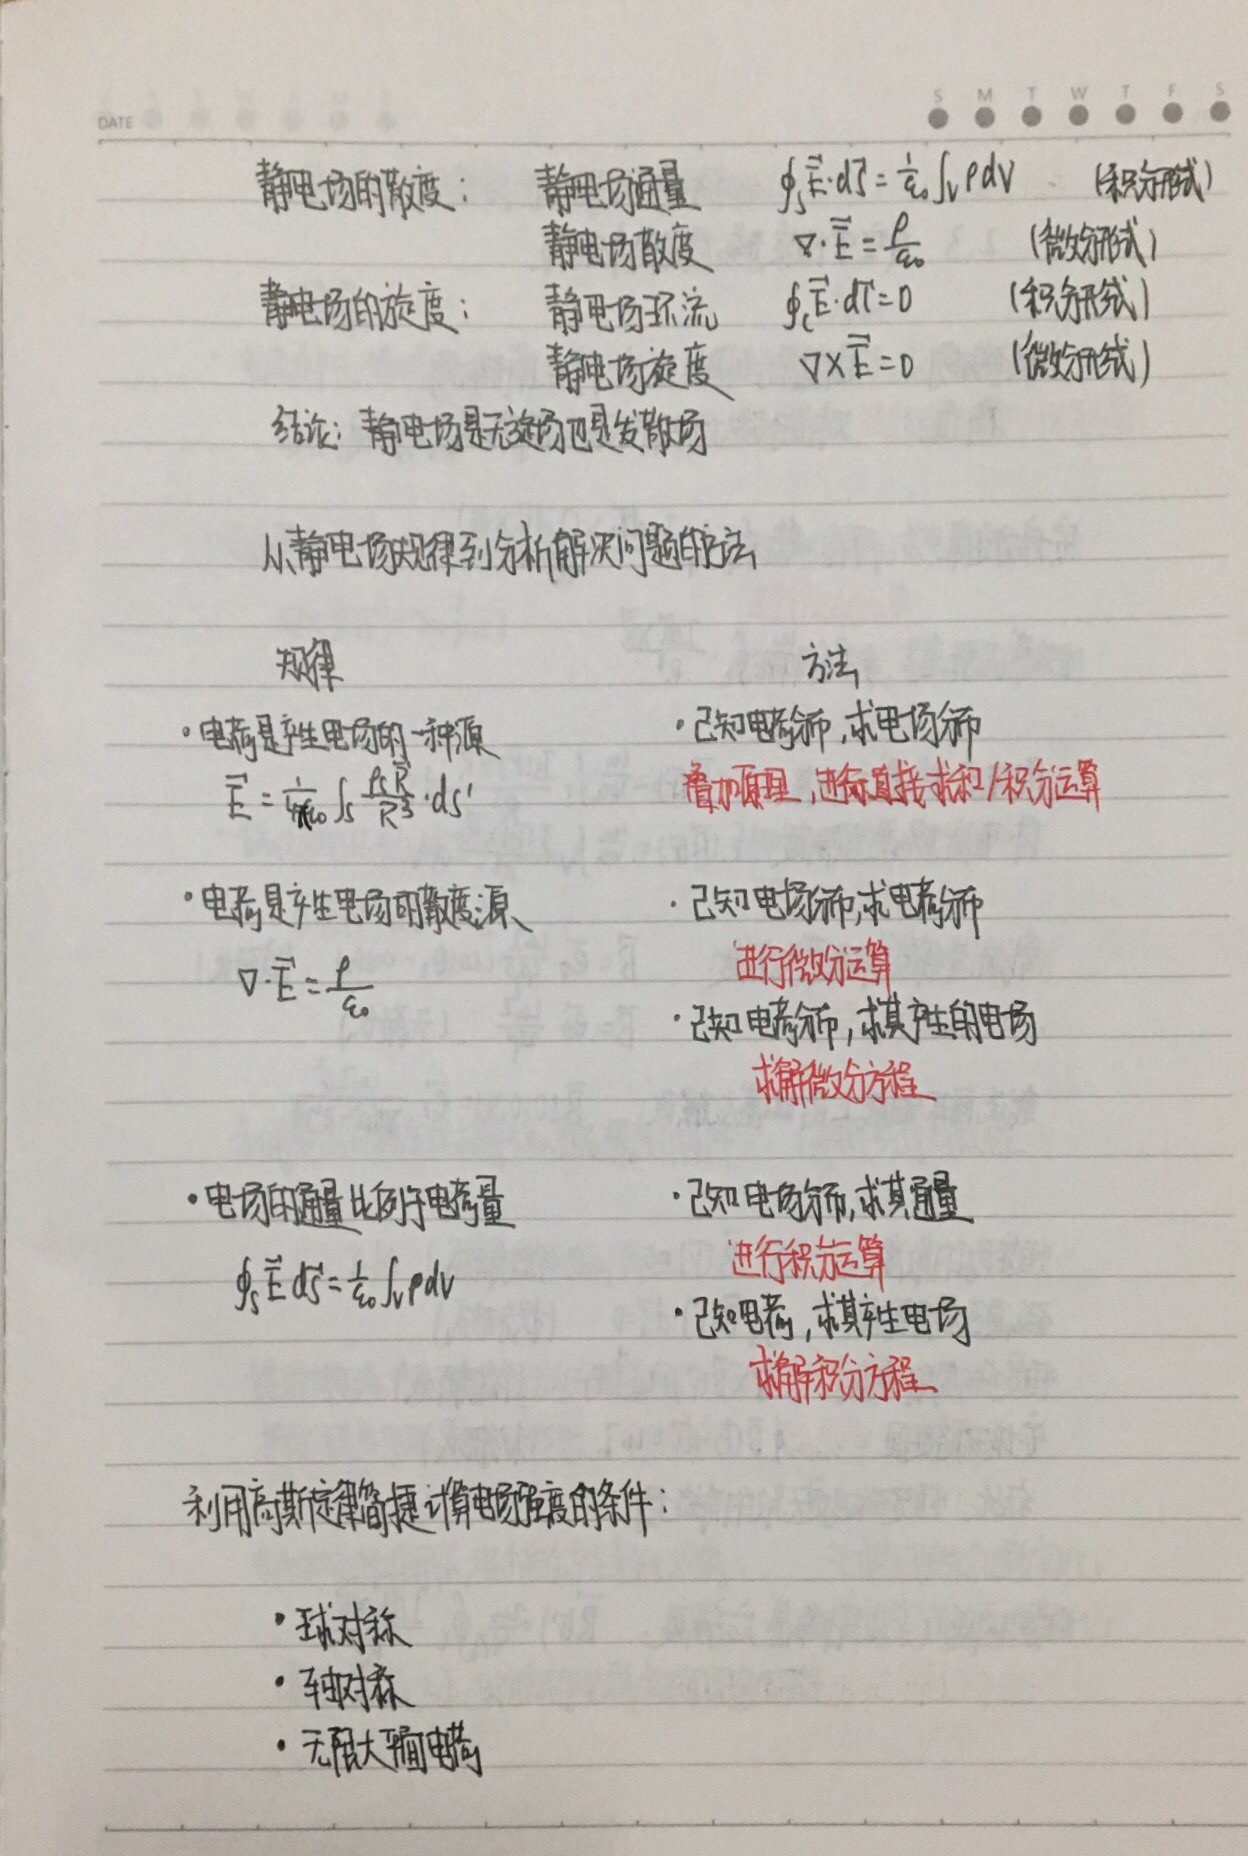 DATE
S M T W T F S
静电场的散度: 静电场通量 ∮ₛE⃗·dS⃗ = 1/ε₀ ∫ᵥρdV (积分形式)
静电场散度 ∇·E⃗ = ρ/ε₀ (微分形式)
静电场的旋度: 静电场环流 ∮_c E⃗·dl⃗ = 0 (积分形式)
静电场旋度 ∇×E⃗ = 0 (微分形式)
结论: 静电场是无旋场也是发散场
从静电场规律到分析解决问题的方法
规律 方法
·电荷是产生电场的一种源 ·已知电荷分布,求电场分布
E⃗ = 1/4πε₀ ∫ₛ ρₛR⃗/R³·ds' 叠加原理,进行直接求和/积分运算
·电荷是产生电场的散度源 ·已知电场分布,求电荷分布
进行微分运算
∇·E⃗ = ρ/ε₀
·已知电荷分布,求其产生的电场
求解微分方程
·电场的通量比例于电荷量 ·已知电场分布,求其通量
进行积分运算
∮ₛE⃗dS⃗ = 1/ε₀ ∫ᵥρdV
·已知电荷,求其产生电场
求解积分方程
利用高斯定律简捷计算电场强度的条件:
·球对称
·轴对称
·无限大平面电荷